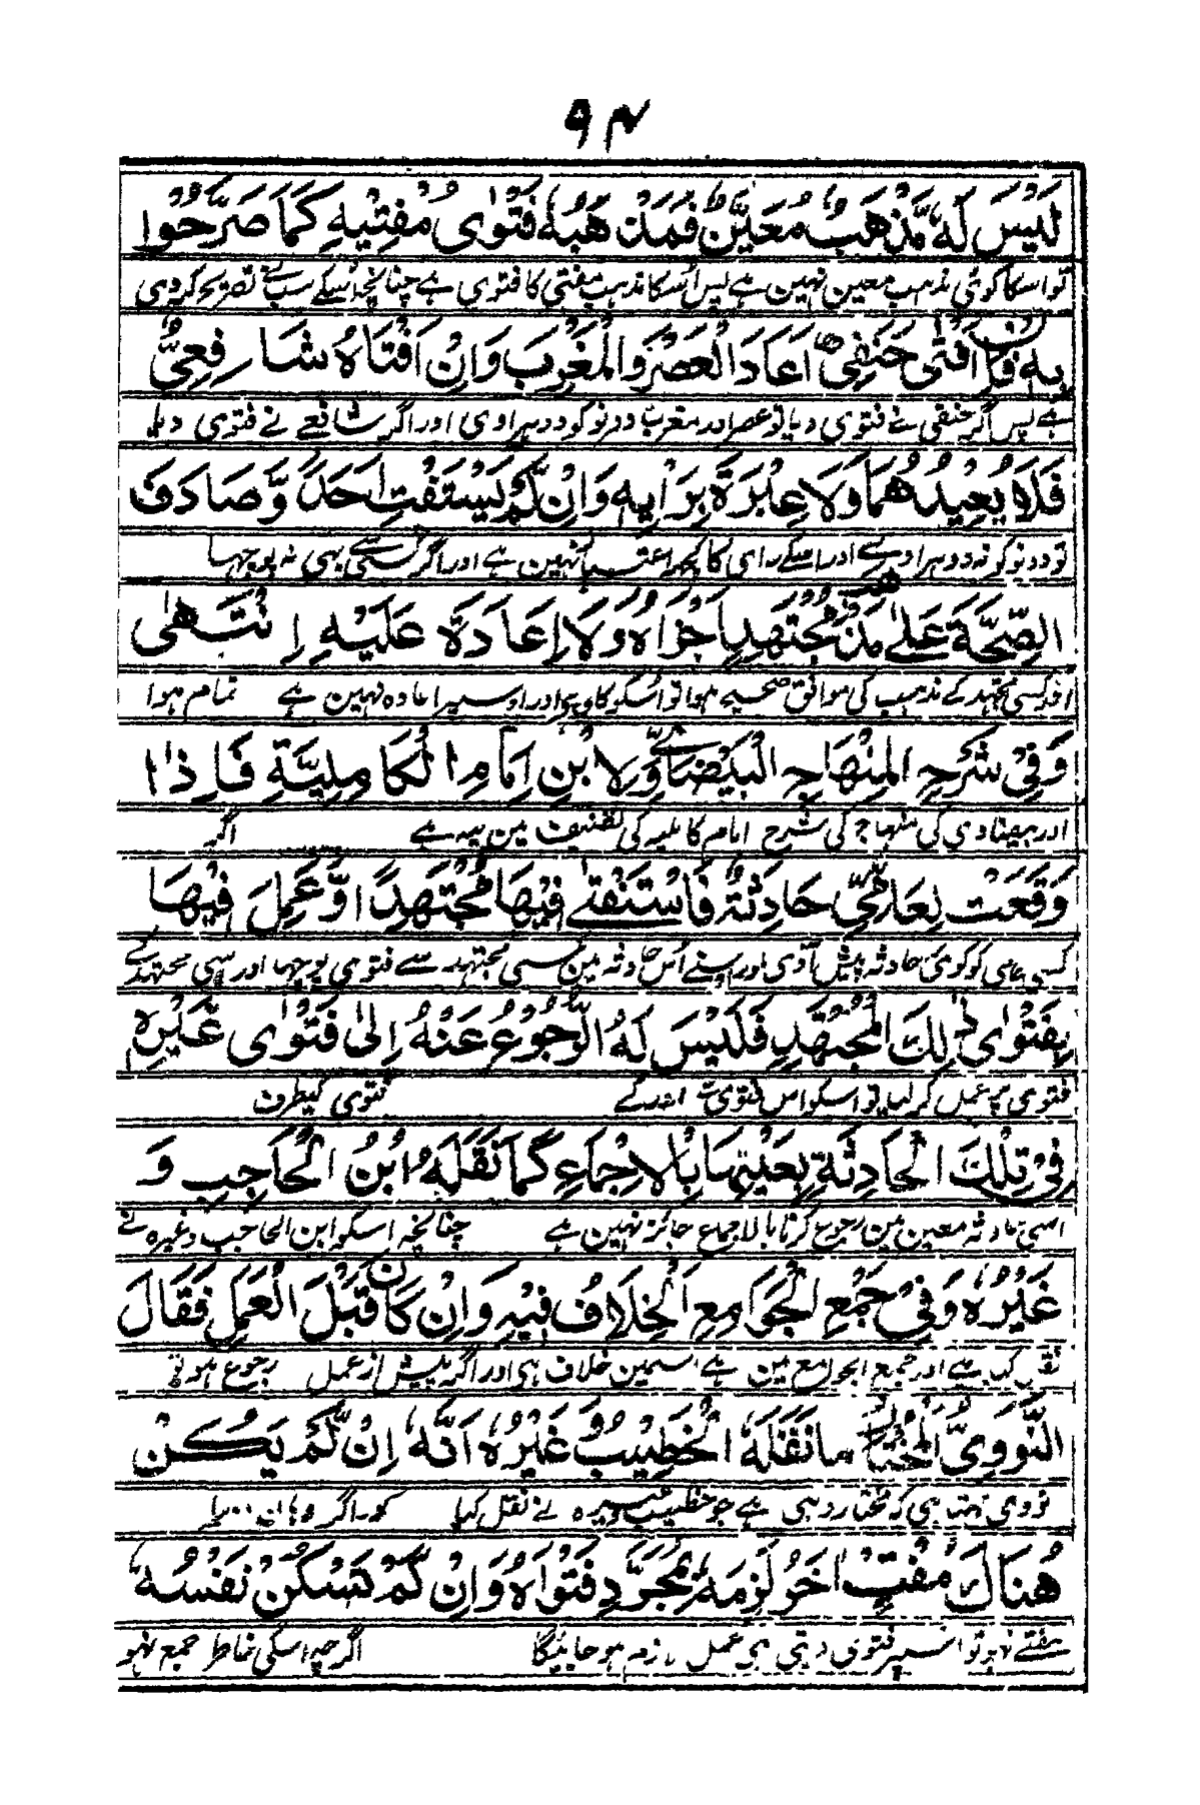 ۹۴
لَيْسَ لَهٗ مَذْهَبٌ مُعَيَّنٌ فَمَذْهَبُهٗ فَتْوٰى مُفْتِيْهِ كَمَا صَرَّحُوْا
تو اسکا کوئی مذہب معین نہین ہے پس اُسکا مذہب مفتی کا فتوی ہے چنانچہ اُسکے سب نے تصریح کردی
بِهٖ فَاِنْ اَفْتٰى حَنَفِيٌّ اَعَادَ الْعَصْرَ وَالْمَغْرِبَ وَاِنْ اَفْتَاهُ شَافِعِيٌّ
ہے پس اگر حنفی نے فتوی دیا تو عصر اور مغرب دونو کو دوہراوی اور اگر شافعے نے فتوی دیا
فَلَا يُعِيْدُهُمَا وَلَا عِبْرَةَ بِرَاْيِهٖ وَاِنْ لَّمْ يَسْتَفْتِ اَحَدًا وَّصَادَفَ
تو دونو کو نہ دوہراوے اور اسکے رای کا کچھ اعتبار نہین ہے اور اگر کسی سے بھی نہ پوچھا
الصِّحَّةَ عَلٰى مَذْهَبِ مُجْتَهِدٍ اَجْزَاهُ وَلَا اِعَادَةَ عَلَيْهِ اِنْتَهٰى
اور کسی مجتہد کے مذہب کی موافق صحیح ہوا تو اُسکو کافی ہے اور اوسپر اعادہ نہین ہے تمام ہوا
وَفِيْ شَرْحِ الْمِنْهَاجِ الْبَيْضَاوِيِّ لِابْنِ اِمَامِ الْكَامِلِيَّةِ فَاِذَا
اور بیضاوی کی منہاج کی شرح امام کاملیہ کی تصنیف مین یہ ہے اگر
وَقَعَتْ لِعَامِّيٍّ حَادِثَةٌ فَاسْتَفْتٰى فِيْهَا مُجْتَهِدًا وَّعَمِلَ فِيْهَا
کسی عامی کو کوئی حادثہ پیش آوی اور اپنے اُس حادثہ مین کسی مجتہد سے فتوی پوچھا اور اسی مجتہد کے
بِفَتْوٰى ذٰلِكَ الْمُجْتَهِدِ فَلَيْسَ لَهُ الرُّجُوْعُ عَنْهُ اِلٰى فَتْوٰى غَيْرِهٖ
فتوی پر عمل کر لیا تو اسکو اس فتوی سے اور کے فتوی کیطرف
فِيْ تِلْكَ الْحَادِثَةِ بِعَيْنِهَا بِالْاِجْمَاعِ كَمَا نَقَلَهُ ابْنُ الْحَاجِبِ وَ
اسی حادثہ معین مین رجوع کرنا بالاجماع جائز نہین ہے چنانچہ اسکو ابن الحاجب وغیرہ نے
غَيْرُهٗ وَفِيْ جَمْعِ الْجَوَامِعِ الْخِلَافُ فِيْهِ وَاِنْ كَانَ قَبْلَ الْعَمَلِ فَقَالَ
نقل کیا ہے اور جمع الجوامع مین ہے اسمین خلاف ہی اور اگر پیش از عمل رجوع ہو تو
النَّوَوِيُّ الْمُخْتَارُ مَا نَقَلَهُ الْخَطِيْبُ وَغَيْرُهٗ اَنَّهٗ اِنْ لَّمْ يَكُنْ
نووی کہتا ہی کہ مختار وہی ہے جو خطیب وغیرہ نے نقل کیا کہ اگر وہان
هُنَاكَ مُفْتٍ اٰخَرُ لَزِمَهٗ بِمُجَرَّدِ فَتْوَاهُ وَاِنْ لَّمْ تَسْكُنْ نَفْسُهٗ
مفتے نہو تو اسپر فتوی دیتی ہی عمل لازم ہو جائیگا اگرچہ اسکی خاطر جمع نہو